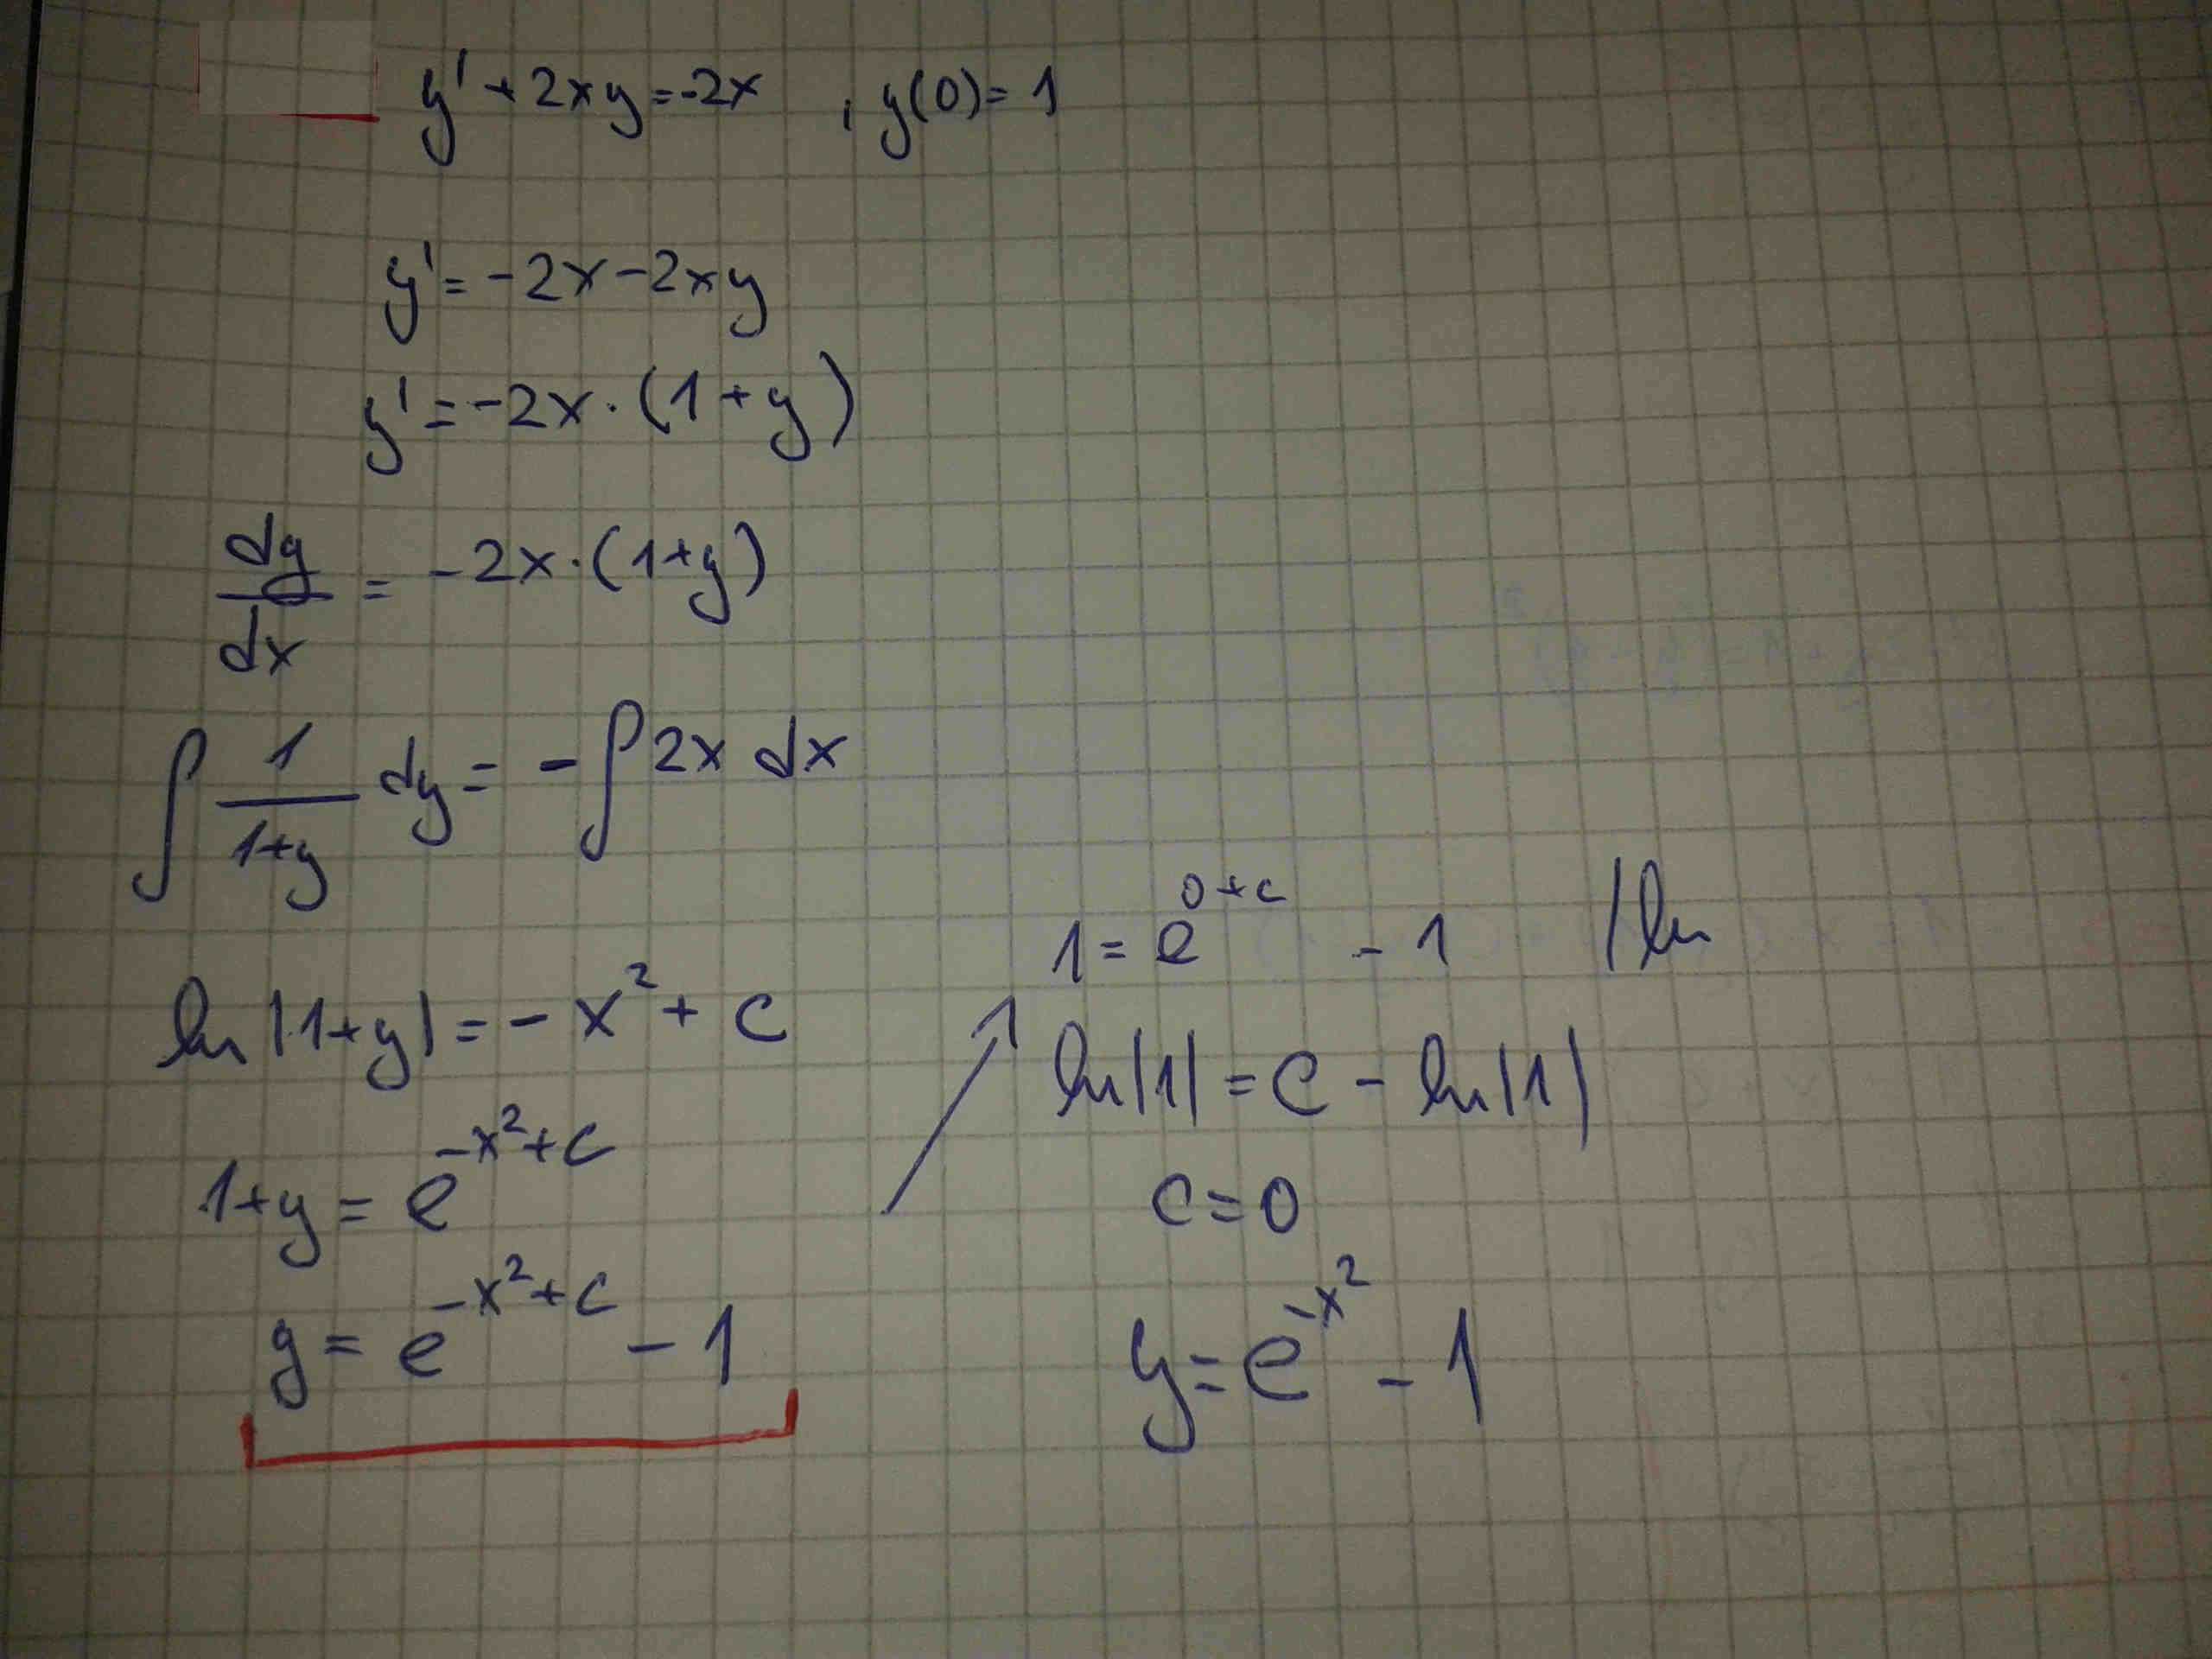 y' + 2xy = -2x , y(0) = 1
y' = -2x - 2xy
y' = -2x · (1+y)
dy/dx = -2x · (1+y)
∫ 1/(1+y) dy = - ∫ 2x dx
ln |1+y| = - x² + c
1+y = e^(-x²+c)
y = e^(-x²+c) - 1
1 = e^(0+c) - 1 / ln
ln|1| = c - ln|1|
c = 0
y = e^(-x²) - 1